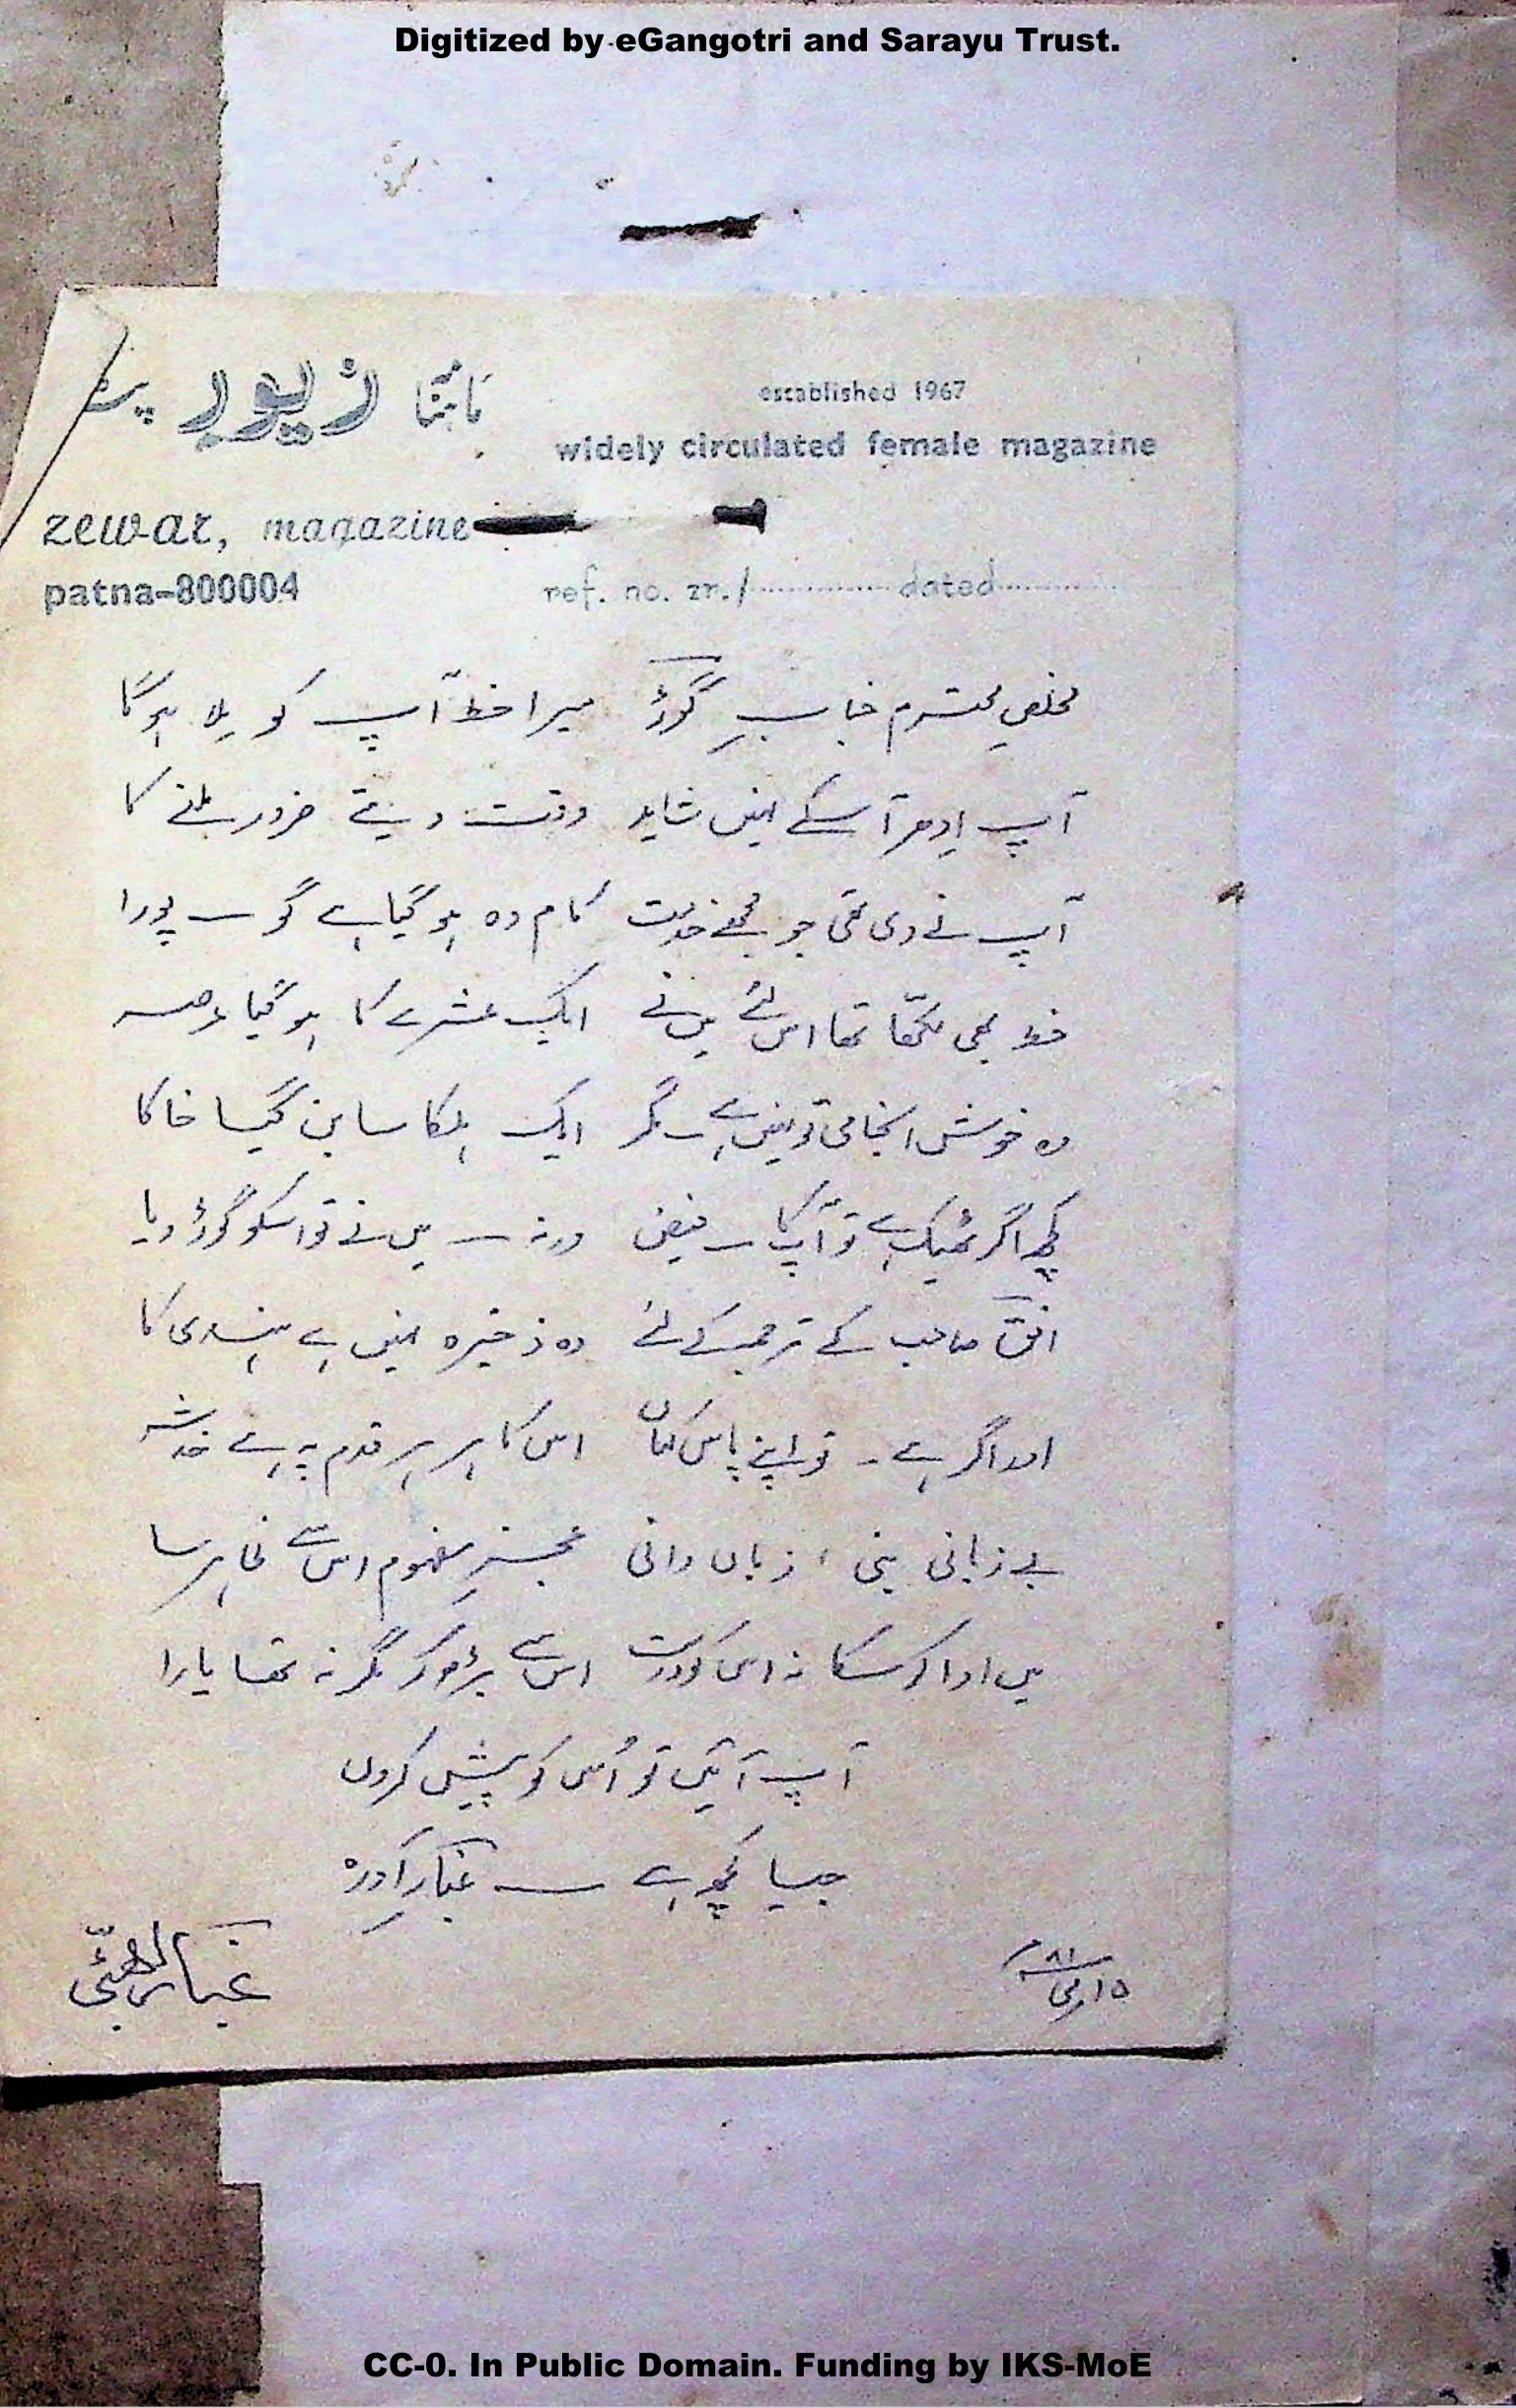 Digitized by eGangotri and Sarayu Trust.
ماہنامہ زیور پٹنہ
established 1967
widely circulated female magazine
zewar, magazine
patna-800004
ref. no. zr./ dated
مخلصِ محترم جنابِ گوڑؔ میرا خط آپ کو مِلا ہوگا
آپ اِدھر آ سکے نہیں شاید وقت دیتے ضرور ملنے کا
آپ نے دی تھی جو مجھے خدمت کام وہ ہو گیا ہے گو — پورا
خط بھی لکھّا تھا اس لئے میں نے ایک عشرے کا ہو گیا عرصہ
وہ خوش انجامی تو نہیں ہے — مگر ایک ہلکا سا بن گیا خاکا
کچھ اگر ٹھیک ہے تو آپ کا — فیض ورنہ — میں نے تو اسکو گوڑ دیا
افقؔ صاحب کے ترجمہ کے لئے وہ ذخیرہ نہیں ہے ہندی کا
اور اگر ہے ۔ تو اپنے پاس کہاں اس کا ہر ہر قدم پہ ہے خدشہ
بے زبانی بنی ، زباں دانی عجزِ مفہوم اس سے ظاہر سا
میں ادا کر سکا نہ اس کو درست اس سے بڑھ کر مگر نہ تھا یارا
آپ آئیں تو اُس کو پیش کروں
جیسا کچھ ہے — غبارِ آوردہ
۱۵ مئی ۸۱ء
CC-0. In Public Domain. Funding by IKS-MoE